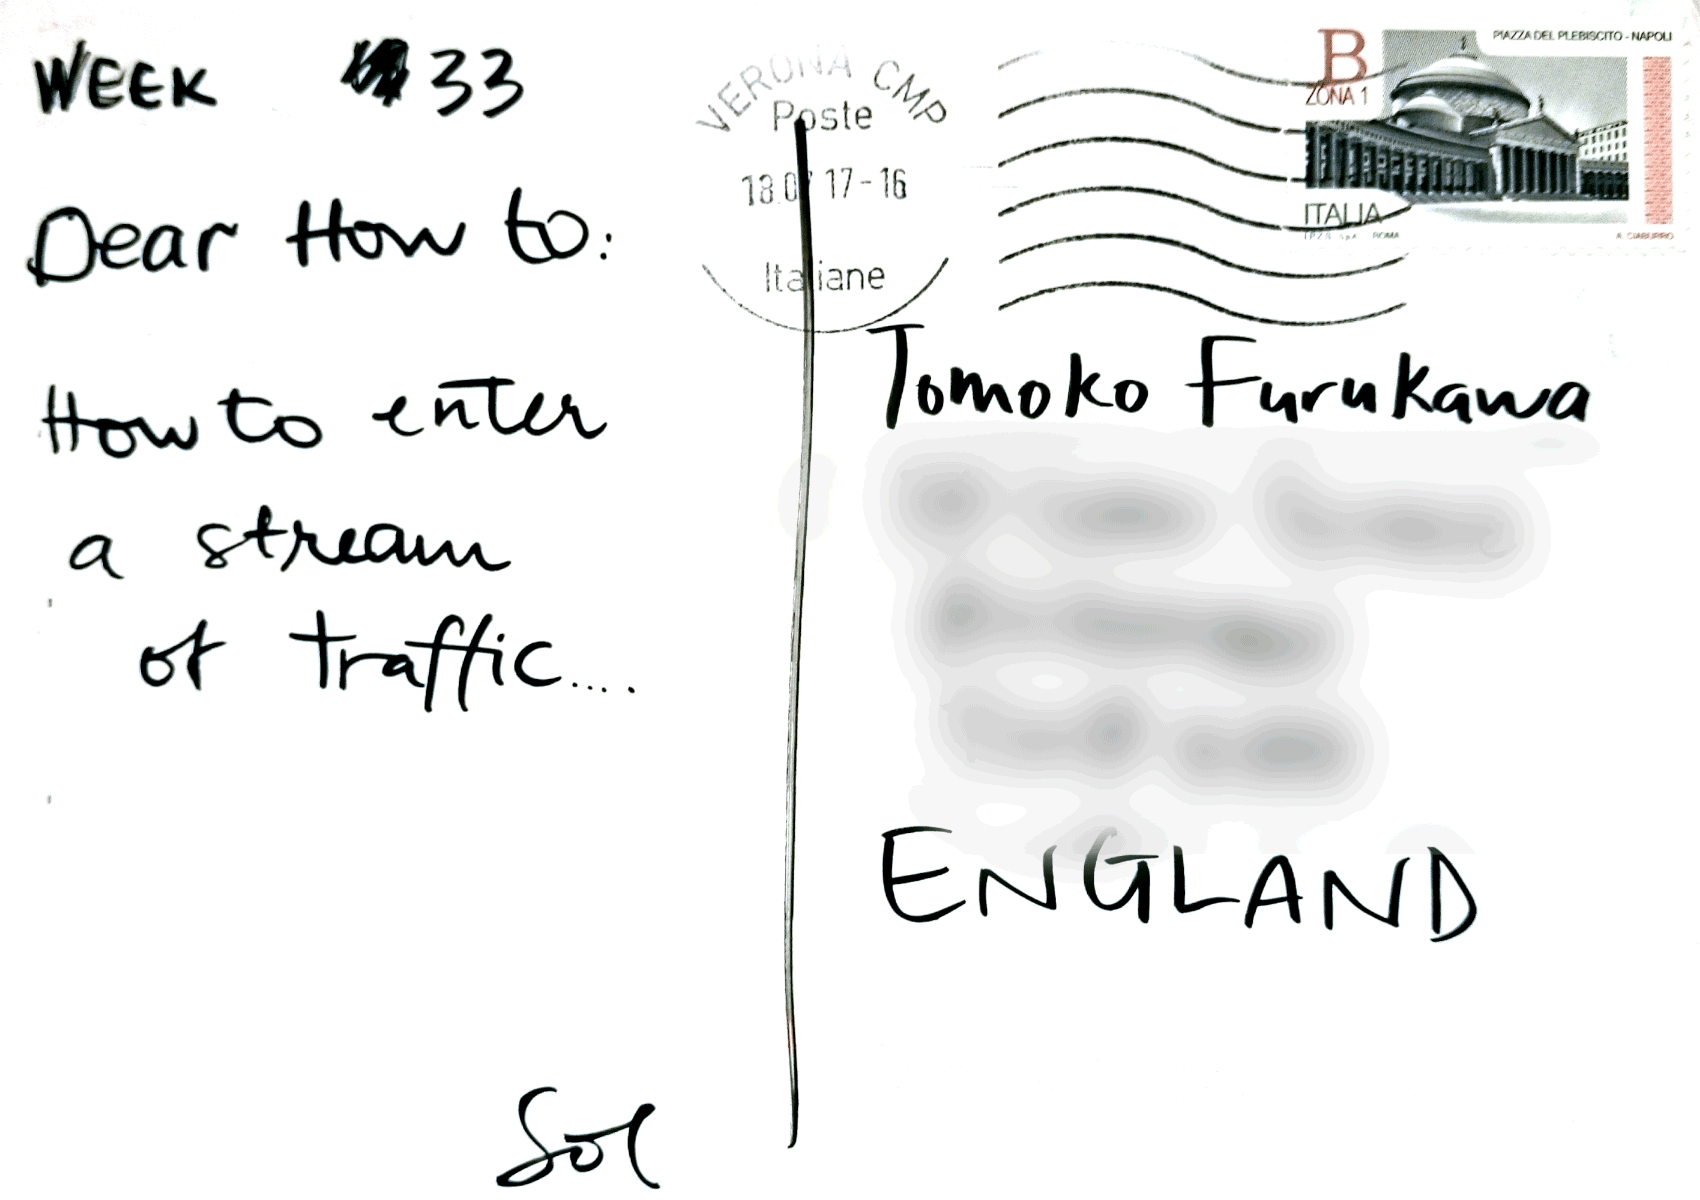 WEEK 33
Dear How to:
How to enter
a stream
of traffic....
Sol
VERONA CMP
Poste
18.07 17-16
Italiane
B
ZONA 1
PIAZZA DEL PLEBISCITO - NAPOLI
ITALIA
I.P.Z.S. S.p.A. ROMA
A. CIABURRO
Tomoko Furukawa
ENGLAND